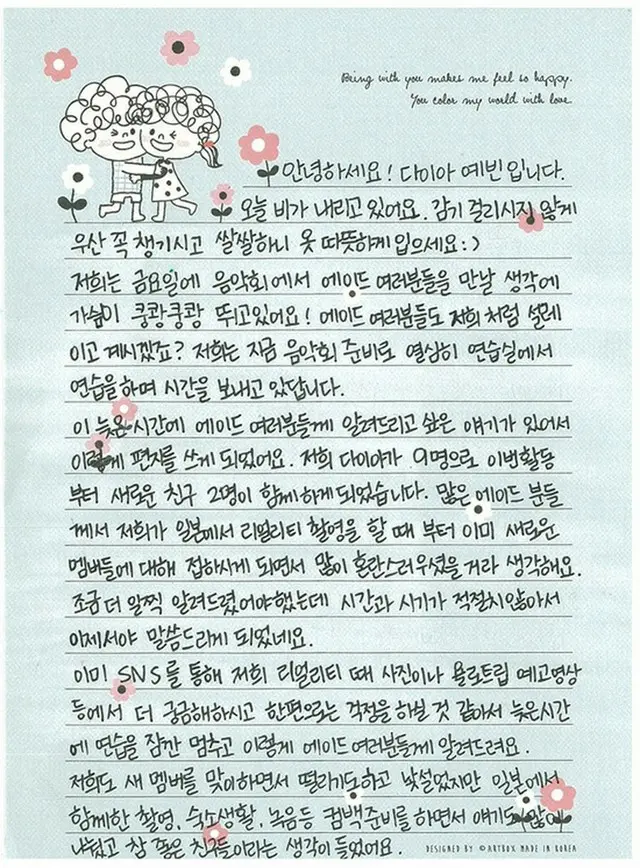 Being with you makes me feel so happy.
You color my world with love.
안녕하세요! 다이아 예빈 입니다.
오늘 비가 내리고 있어요. 감기 걸리시지 않게
우산 꼭 챙기시고 쌀쌀하니 옷 따뜻하게 입으세요:)
저희는 금요일에 음악회에서 에이드 여러분들을 만날 생각에
가슴이 쿵쾅쿵쾅 뛰고있어요! 에이드 여러분들도 저희 처럼 설레
이고 계시겠죠? 저희는 지금 음악회 준비로 열심히 연습실에서
연습을 하며 시간을 보내고 있답니다.
이 늦은 시간에 에이드 여러분들께 알려드리고 싶은 얘기가 있어서
이렇게 편지를 쓰게 되었어요. 저희 다이아가 9명으로 이번활동
부터 새로운 친구 2명이 함께 하게 되었습니다. 많은 에이드 분들
께서 저희가 일본에서 리얼리티 촬영을 할 때 부터 이미 새로운
멤버들에 대해 접하시게 되면서 많이 혼란스러우셨을거라 생각해요.
조금 더 일찍 알려드렸어야했는데 시간과 시기가 적절치않아서
이제서야 말씀드리게 되었네요.
이미 SNS를 통해 저희 리얼리티 때 사진이나 욜로트립 예고영상
등에서 더 궁금해하시고 한편으로는 걱정을 하실 것 같아서 늦은시간
에 연습을 잠깐 멈추고 이렇게 에이드 여러분들께 알려드려요.
저희도 새 멤버를 맞이하면서 떨리기도하고 낯설었지만 일본에서
함께한 촬영, 숙소생활, 녹음등 컴백준비를 하면서 얘기도 많이
나눴고 참 좋은 친구들이라는 생각이 들었어요.
DESIGNED BY ©ARTBOX MADE IN KOREA